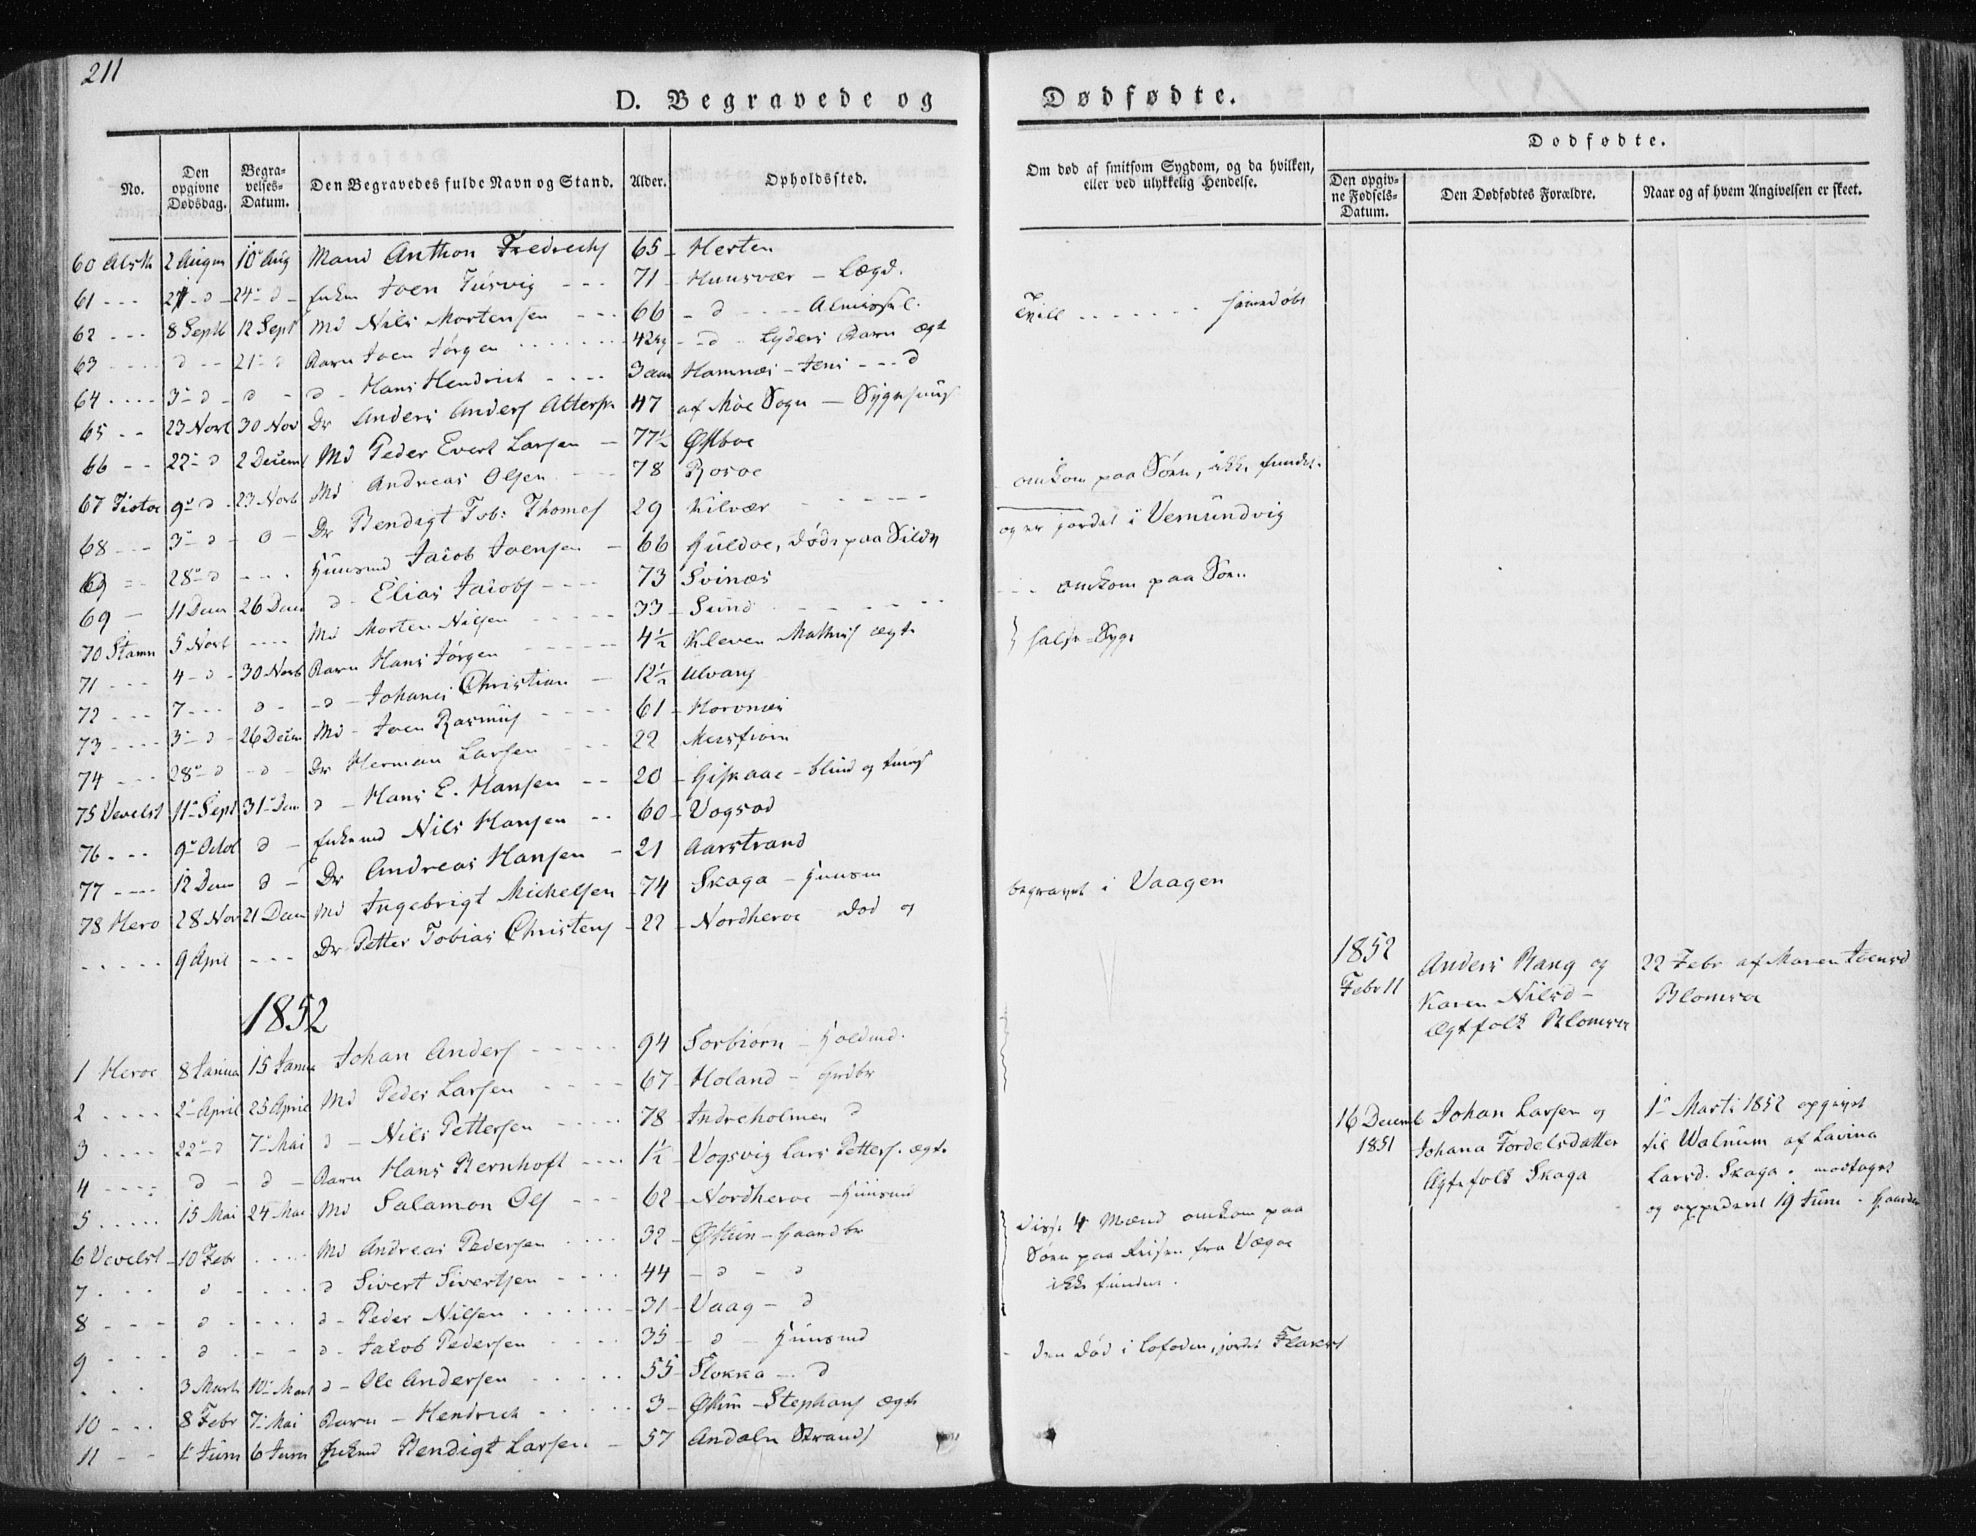 211
D. Begravede og Dødfødte.
No.
Den opgivne Dødsdag.
Begravelses-Datum.
Den Begravedes fulde Navn og Stand.
Alder.
Opholdssted.
Om død af smitsom Sygdom, og da hvilken, eller ved ulykkelig Hendelse.
Dødfødte.
Den opgivne Fødsels-Datum.
Den Dødfødtes Forældre.
Naar og af hvem Angivelsen er skeet.
60 Alsth 2 August 10 Aug Mand Anthon Fredrichs 65 - Hesten
61 - - - 24 - d - 24 - d - Enkem Joen Tusvig - - - 71 - Huusvær - Lægd.
62 - - - 8 Septb 12 Sept Md Nils Mortensen - - - 66 - d - - - Almisse l.
63 - - - - d - - 21 - d Barn Joen Jørgen - - - - 42ug - d - Lyders Barn ægt
64 - - - - 3 - d - d - d - Hans Hendrich - - - - 3 aar Hamnæs - Jens - - - d
65 - - 23 Novb 30 Nov Dr Anders Anders Attersn 47 af Moe Sogn - Sygehuus
66 - - 22 - d 2 Decemb Md Peder Evert Larsen - 77½ Østboe
67 Tiotøe 9 - d - 23 Novb Md Andreas Olsen - - - 78 Rosøe
68 - - - 3 - d - d - Dr Bendigt Tob: Thomes 29 Kilvær
69 - - 28 - d - - - Huusmd Jacob Joensen - 66 Huldøe, døde paa Sildf
69 - 11 Decm 26 Decm d - Elias Jacobs - - - 73 - Svinæs
70 Stamn 5 Novb - - - - Md Morten Nilsen - - - - 33 - Sund
71 - - - 4 - d - 30 Novb Barn Hans Jørgen - - - - 4½ Kleven Mathis ægt
72 - - - 7 - - - d - - d - Johanes Christian - 12½ Ulvang
73 - - - - 3 - d - 26 Decem Md - Joen Rasmus - - - - 61 - Horvnæs
74 - - - 28 - d - d - Dr Herman Larsen - - - 22 Meisfiorn
75 Vevelst 11 Sept 31 - Dem d - Hans E. Hansen - - 20 - Giskaae - blind og
76 - - - 9 Octob d - Enkemd Nils Hansen - - 60 - Vogsød
77 - - - - 12 Dem d - Dr Andreas Hansen - 21 Aarstrand
78 Herø 28 Nov 21 Dem Md Ingebrigt Michelsen - 74 Skaga - Huusm
- - - - - 9 April - - - Dr Petter Tobias Christens - 22 - Nordherøe død og
1852
1 Herøe 8 Janua 15 Janua Johan Anders - - - - - 94 Sørbiørn - Holdmd.
2 - - - - 2 April 25 April Md Peder Larsen - - - - 67 - Holand - Grdbr
3 - - - - 22 - d 7 Mai d - Nils Pettersen - - - - - 78 - Indreholmen d
4 - - - - d - d - Barn Hans Bernhoft - - - - 1½ - Vogsvig Lars Petters. ægt.
5 - - - - - 15 Mai 24 Mai Md Salamon Ols - - - 62 - Nordherøe - Huusmd
6 Vevelst - 10 Febr - - - - Md Andreas Pedersen - - - - 32 - Østun - Gaardbr
7 - - - d - - - - d Sivert Sivertsen - - - - 44 - d - d
8 - - - - d - - - - d - Peder Nilsen - - - - - - 31 - Vaag - d
9 - - - - d - - - d - Jakob Pedersen - - - - 35 - d - Huusmd
- - - 3 Marti 10 - Mart d - Ole Andersen - - - - - 55 - Flokka - - d
10 - - - 8 Febr 7 - Mai Barn - Hendrich - - - - - 3 - Østun - Stephans ægte
11 - - 1 Juni 6 Juni Enkmd Bendigt Larsen - 57 Andaln Strand
Tvill - - - - - - -
omkom paa Søen, ikke fundet.
og er jordet i Vemundvig
- - - omkom paa Søen
} halse-Syge
begravet i Vaagen
Disse 4 Mænd omkom paa
Søen paa Reisen fra Vægøe
ikke fundne.
- den død i Lofoden, jordet Flakst
1852
Febr 11
Anders Rang og
Karen Nilsd -
Ægtefolk Blomsøe
22 Febr af Maren Joensd
Blomsøe
16 Decemb
1851
Johan Larsen og
Johana Fordelsdatter
Ægtefolk Skaga
1 Marti 1852 opgivet
til Walnum af Lavina
Larsd. Skaga. modtaget
og expederet 19 Juni.